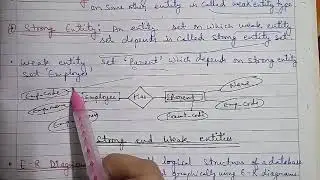 on some other entity is called weak entity type
Strong Entity: An entity set on which weak entity
set depends is called strong entity set
weak entity set 'Parent' which depends on strong entity
set 'Employee'
Emp-Code Employee Has Parent Name
Emp-code
Parent-code
Strong and Weak entities
E-R Diagram logical structure of a database
graphically using E-R diagrams